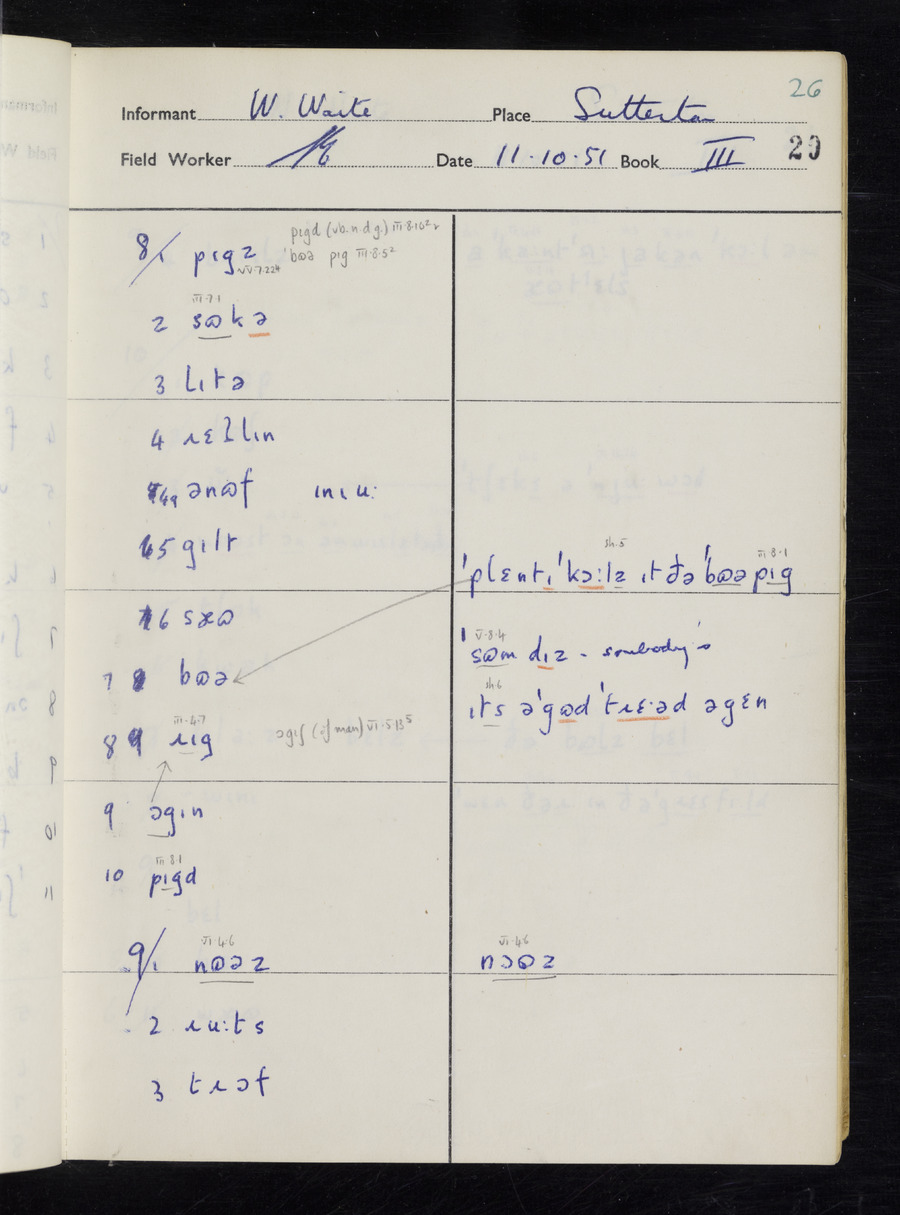 26
Informant W. Waite Place Sutterton
Field Worker Date 11·10·51 Book III 29
8/1 pɪgz pɪgd (vb.n.dg.) III·8·10²
VI·7·224 ˈbɷə pɪg III·8·5²
III·7·1
2 sɷkə
3 lɪtə
4 ɹɛlɪn
4a ənɷf ɪnɪu:
5 gɪlt
sh.5 III·8·1
ˈplɛntɪ ˈkɔ:lz ɪt ðə ˈbɷə pɪg
6 sæɷ
V·8·4
7 bɷə
sɷm dɪz - somebody's
sh.6
ɪts əˈgɷd ˈtɹɛ·əd əgɛn
III·4·7
8 ɹɪg əgɪʃ (of man) VI·5·13⁵
9 əgɪn
III 8·1
10 pɪgd
VI·4·6 VI·4·6
9/1 nɷəz nɔɷz
2 ɹu:ts
3 tɹɔf